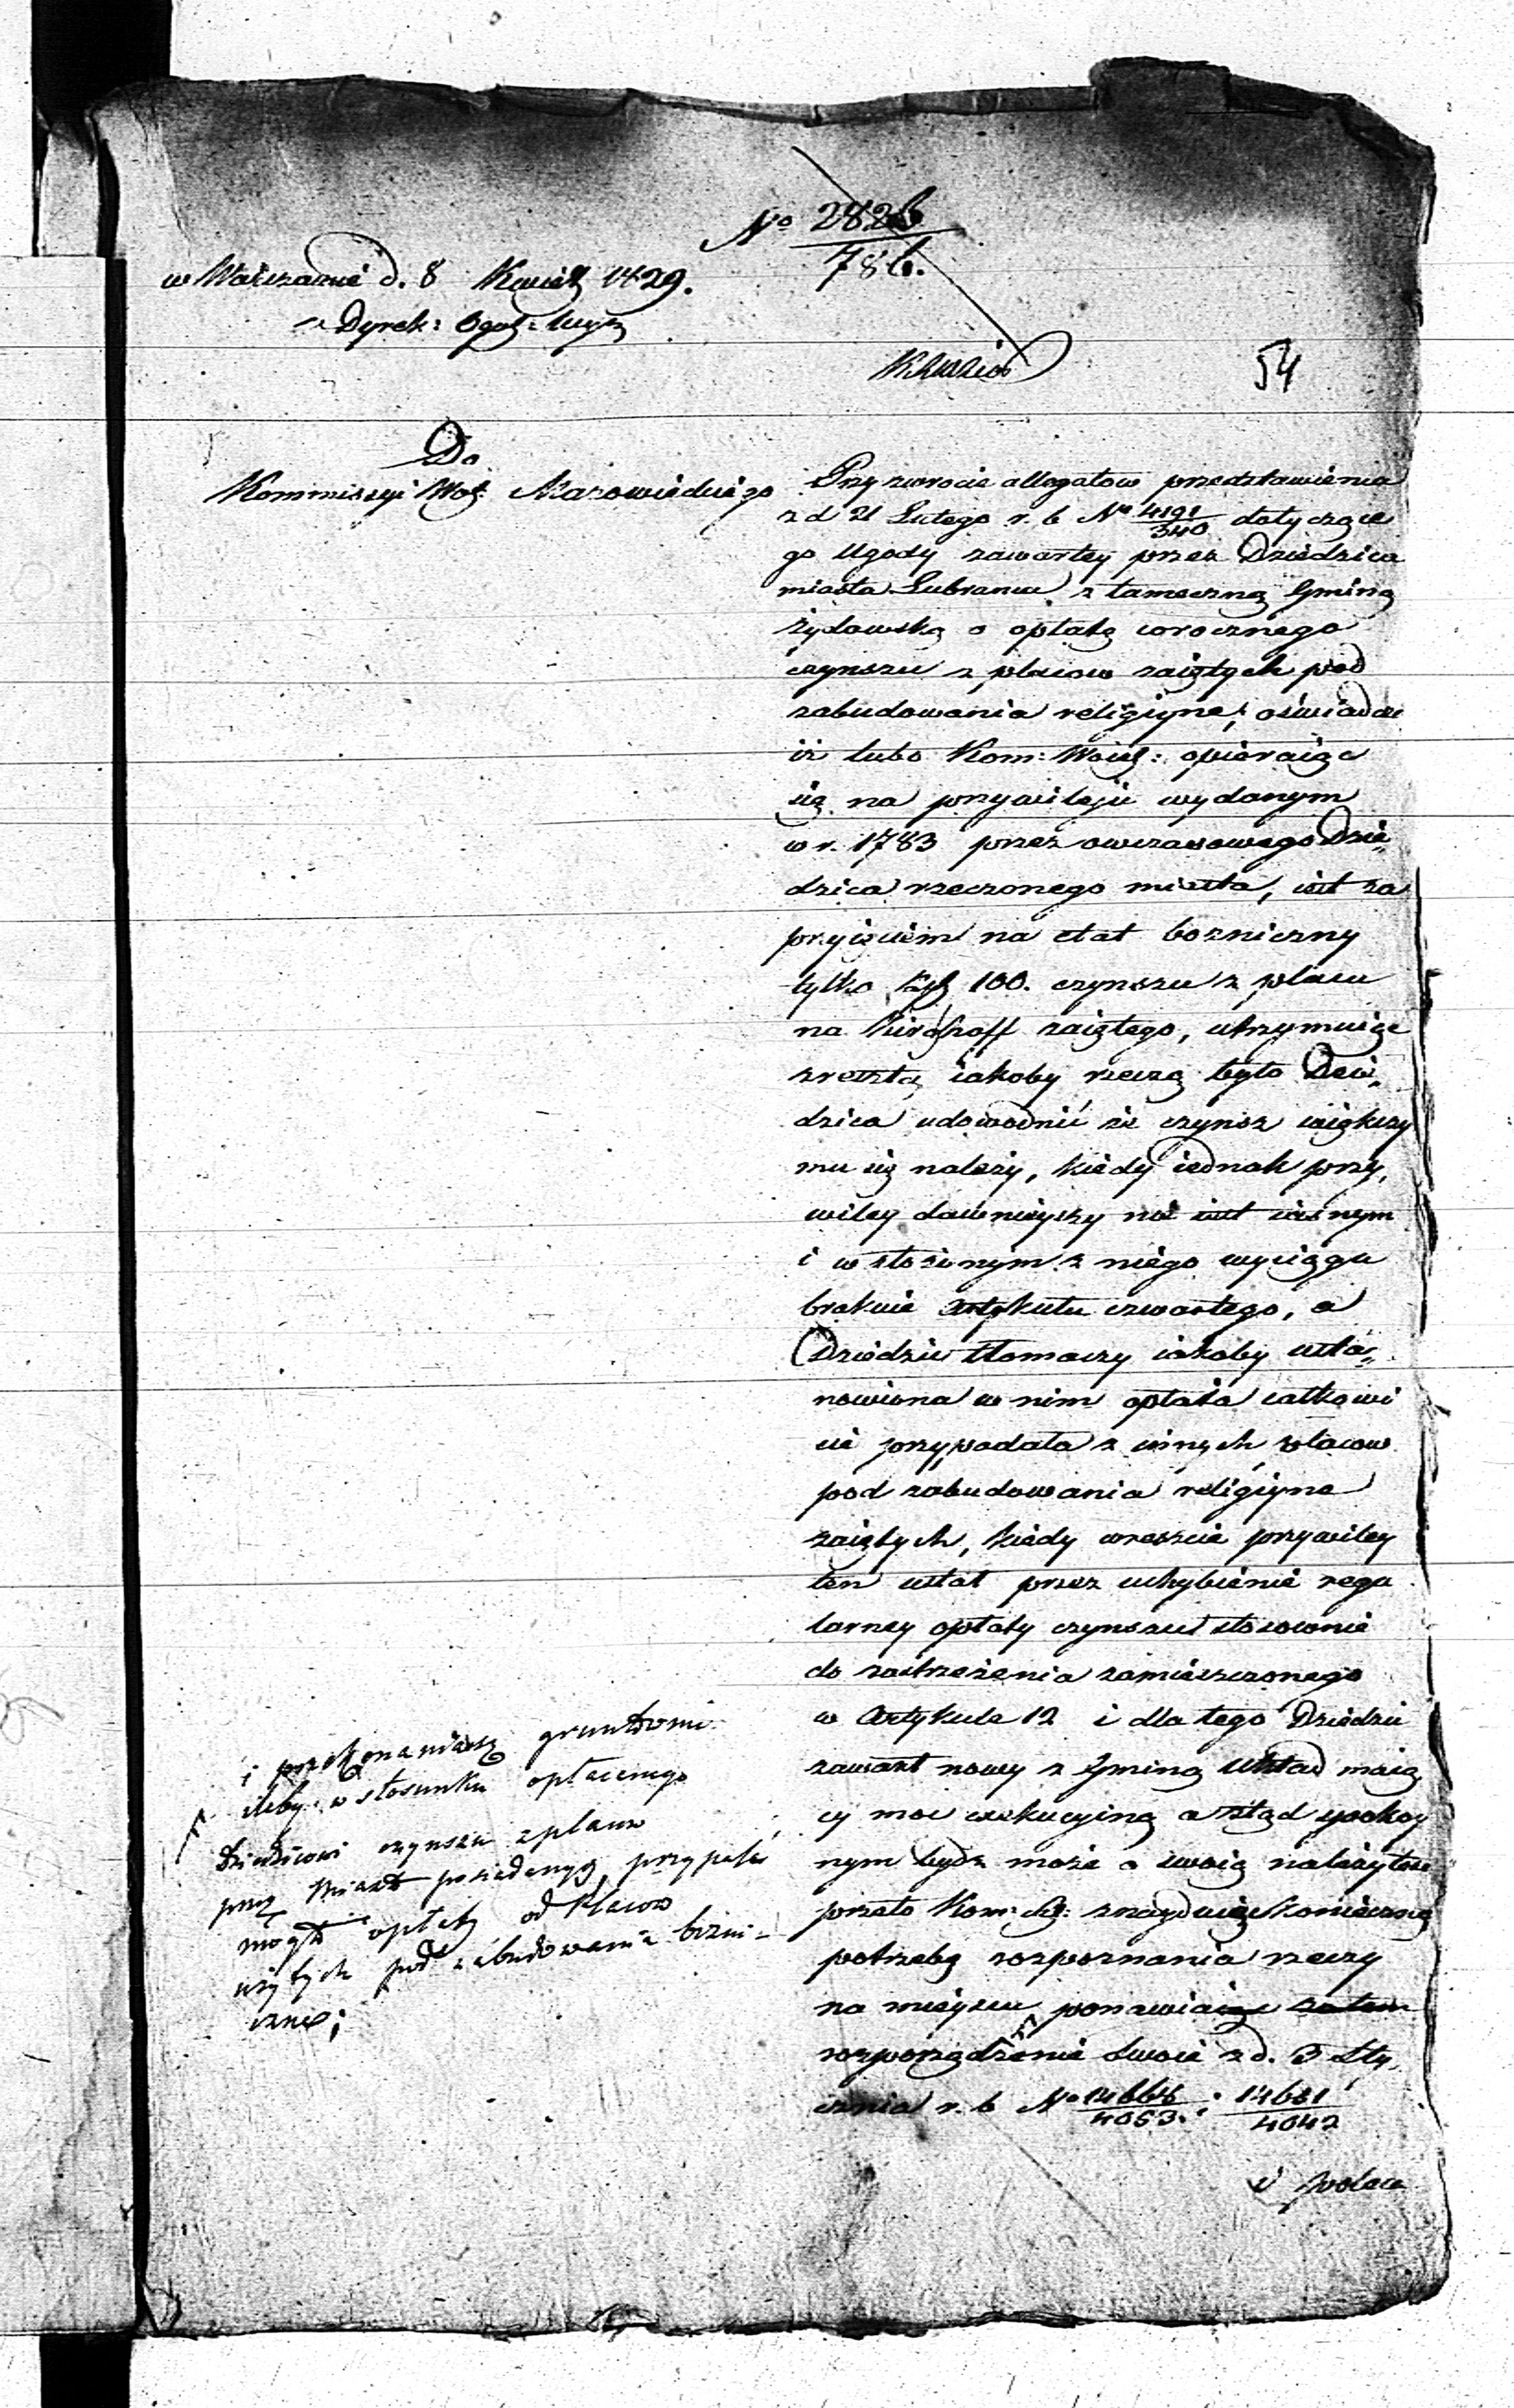 No 2826
786.
w Warszawie d. 8 Kwiet 1829.
Dyrek: Ogol:
54
Do
Kommissyi Woj: Mazowieckiego
Przy zwrocie allegatow przedstawienia
z d 21 Lutego r. b No 4191/340 dotyczące
go Ugody zawartey przez Dziedzica
miasta Lubrańca z tameczną Gminą
żydowską o opłatę corocznego
czynszu z placow zaiętych pod
zabudowania religiyne, oświadcza
iż lubo Kom: Woiew: opieraiąc
się na przywileju wydanym
w r. 1783 przez owczasowego Dzie„
dzica rzeczonego miasta, iest za
przyięciem na etat bozniczny
tylko Złp 100. czynszu z placu
na Kirchoff zaiętego, utrzymuiąc
zresztą iakoby rzeczą było Dzie„
dzica udowodnić że czynsz większy
mu się należy, kiedy iednak przy„
wiley dawnieyszy nie iest iasnym
i w złożonym z niego wyciągu
brakuie artykułu czwartego, a
Dziedzic tłomaczy iakoby usta„
nowiona w nim opłata całkowi
cie przypadała z innych placow
pod zabudowania religiyne
zaiętych, kiedy wreszcie przywiley
ten ustał przez uchybienie regu
larney opłaty czynszu stosownie
do zastrzeżenia zamieszczonego
w Artykule 12 i dla tego Dziedzic
zawarł nowy z Gminą Układ maią
cy moc exekucyiną a ztąd spokoy
nym bydź może o swoią należytość
przeto Kom: Rz: znayduiąc konieczną
potrzebę rozpoznania rzeczy
na mieyscu, ponawiaiąc zatem
rozporządzenie swoie z d. 3 Sty„
cznia r. b No 14668/4053. i 14681/4042
i poleca
i przekonania się gruntownie
ileby w stosunku opłacanego
Dziedzicowi czynszu z placow
przez Miasto posiadanych, przypaść
mogło opłaty od Placow
użytych pod zabudowania bożni„
czne;